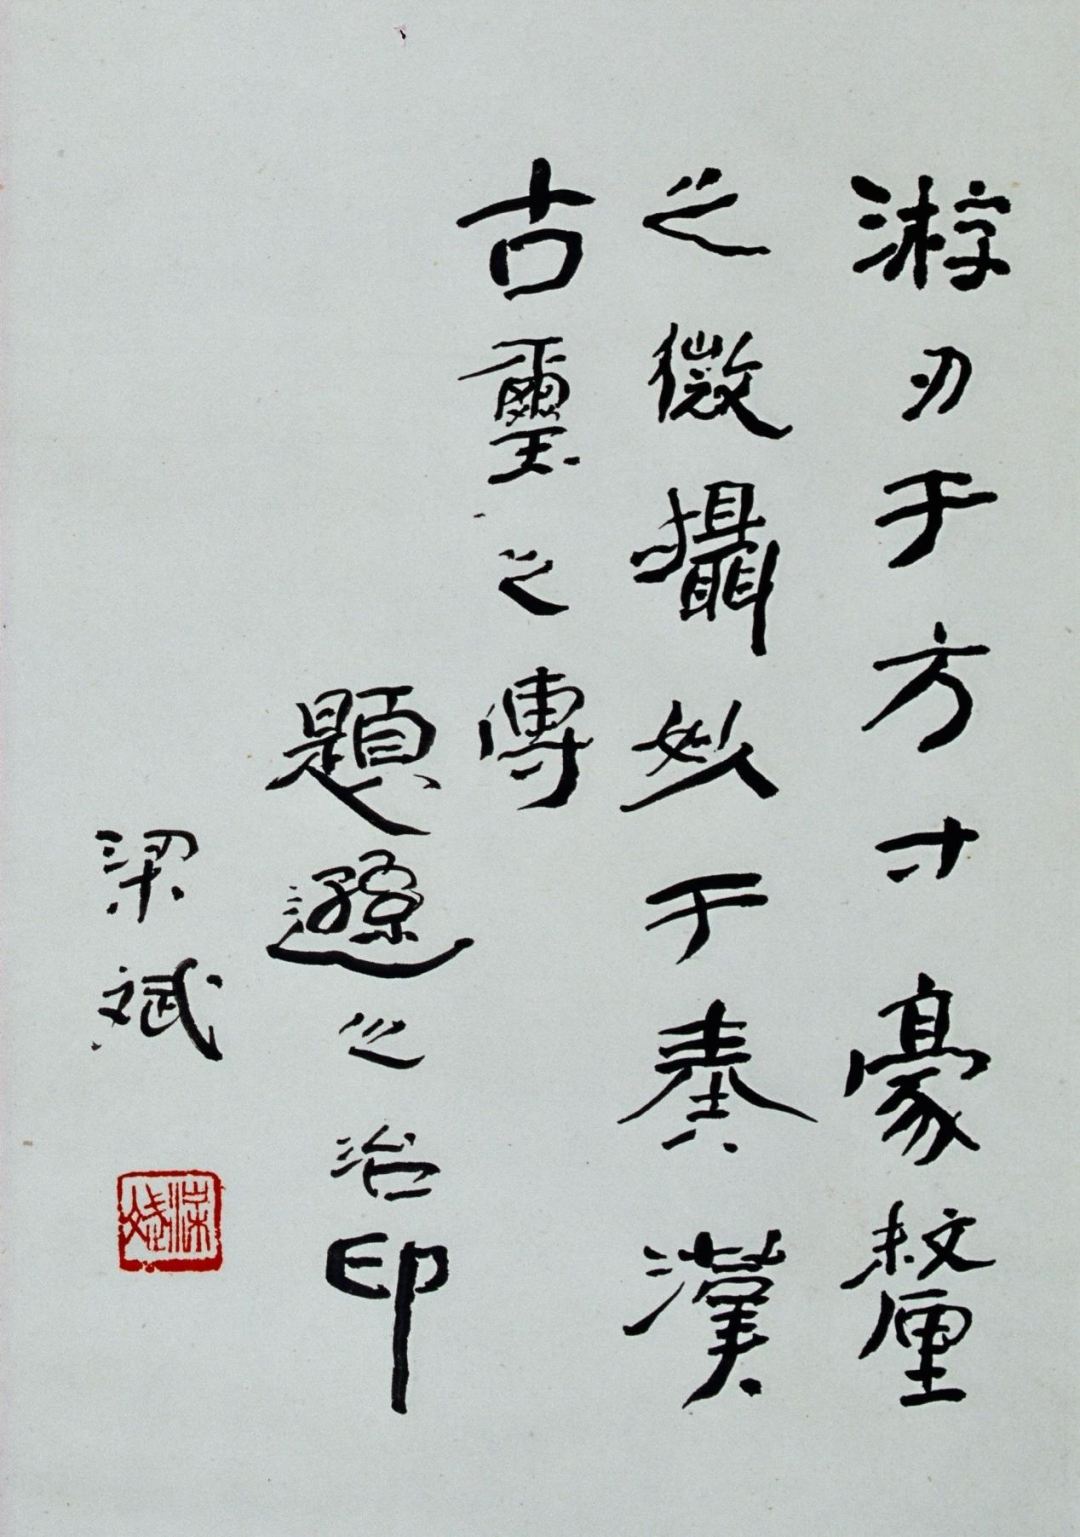 游刃于方寸豪釐
之微攝妙于秦漢
古璽之傳
題遜之治印
梁斌
梁斌